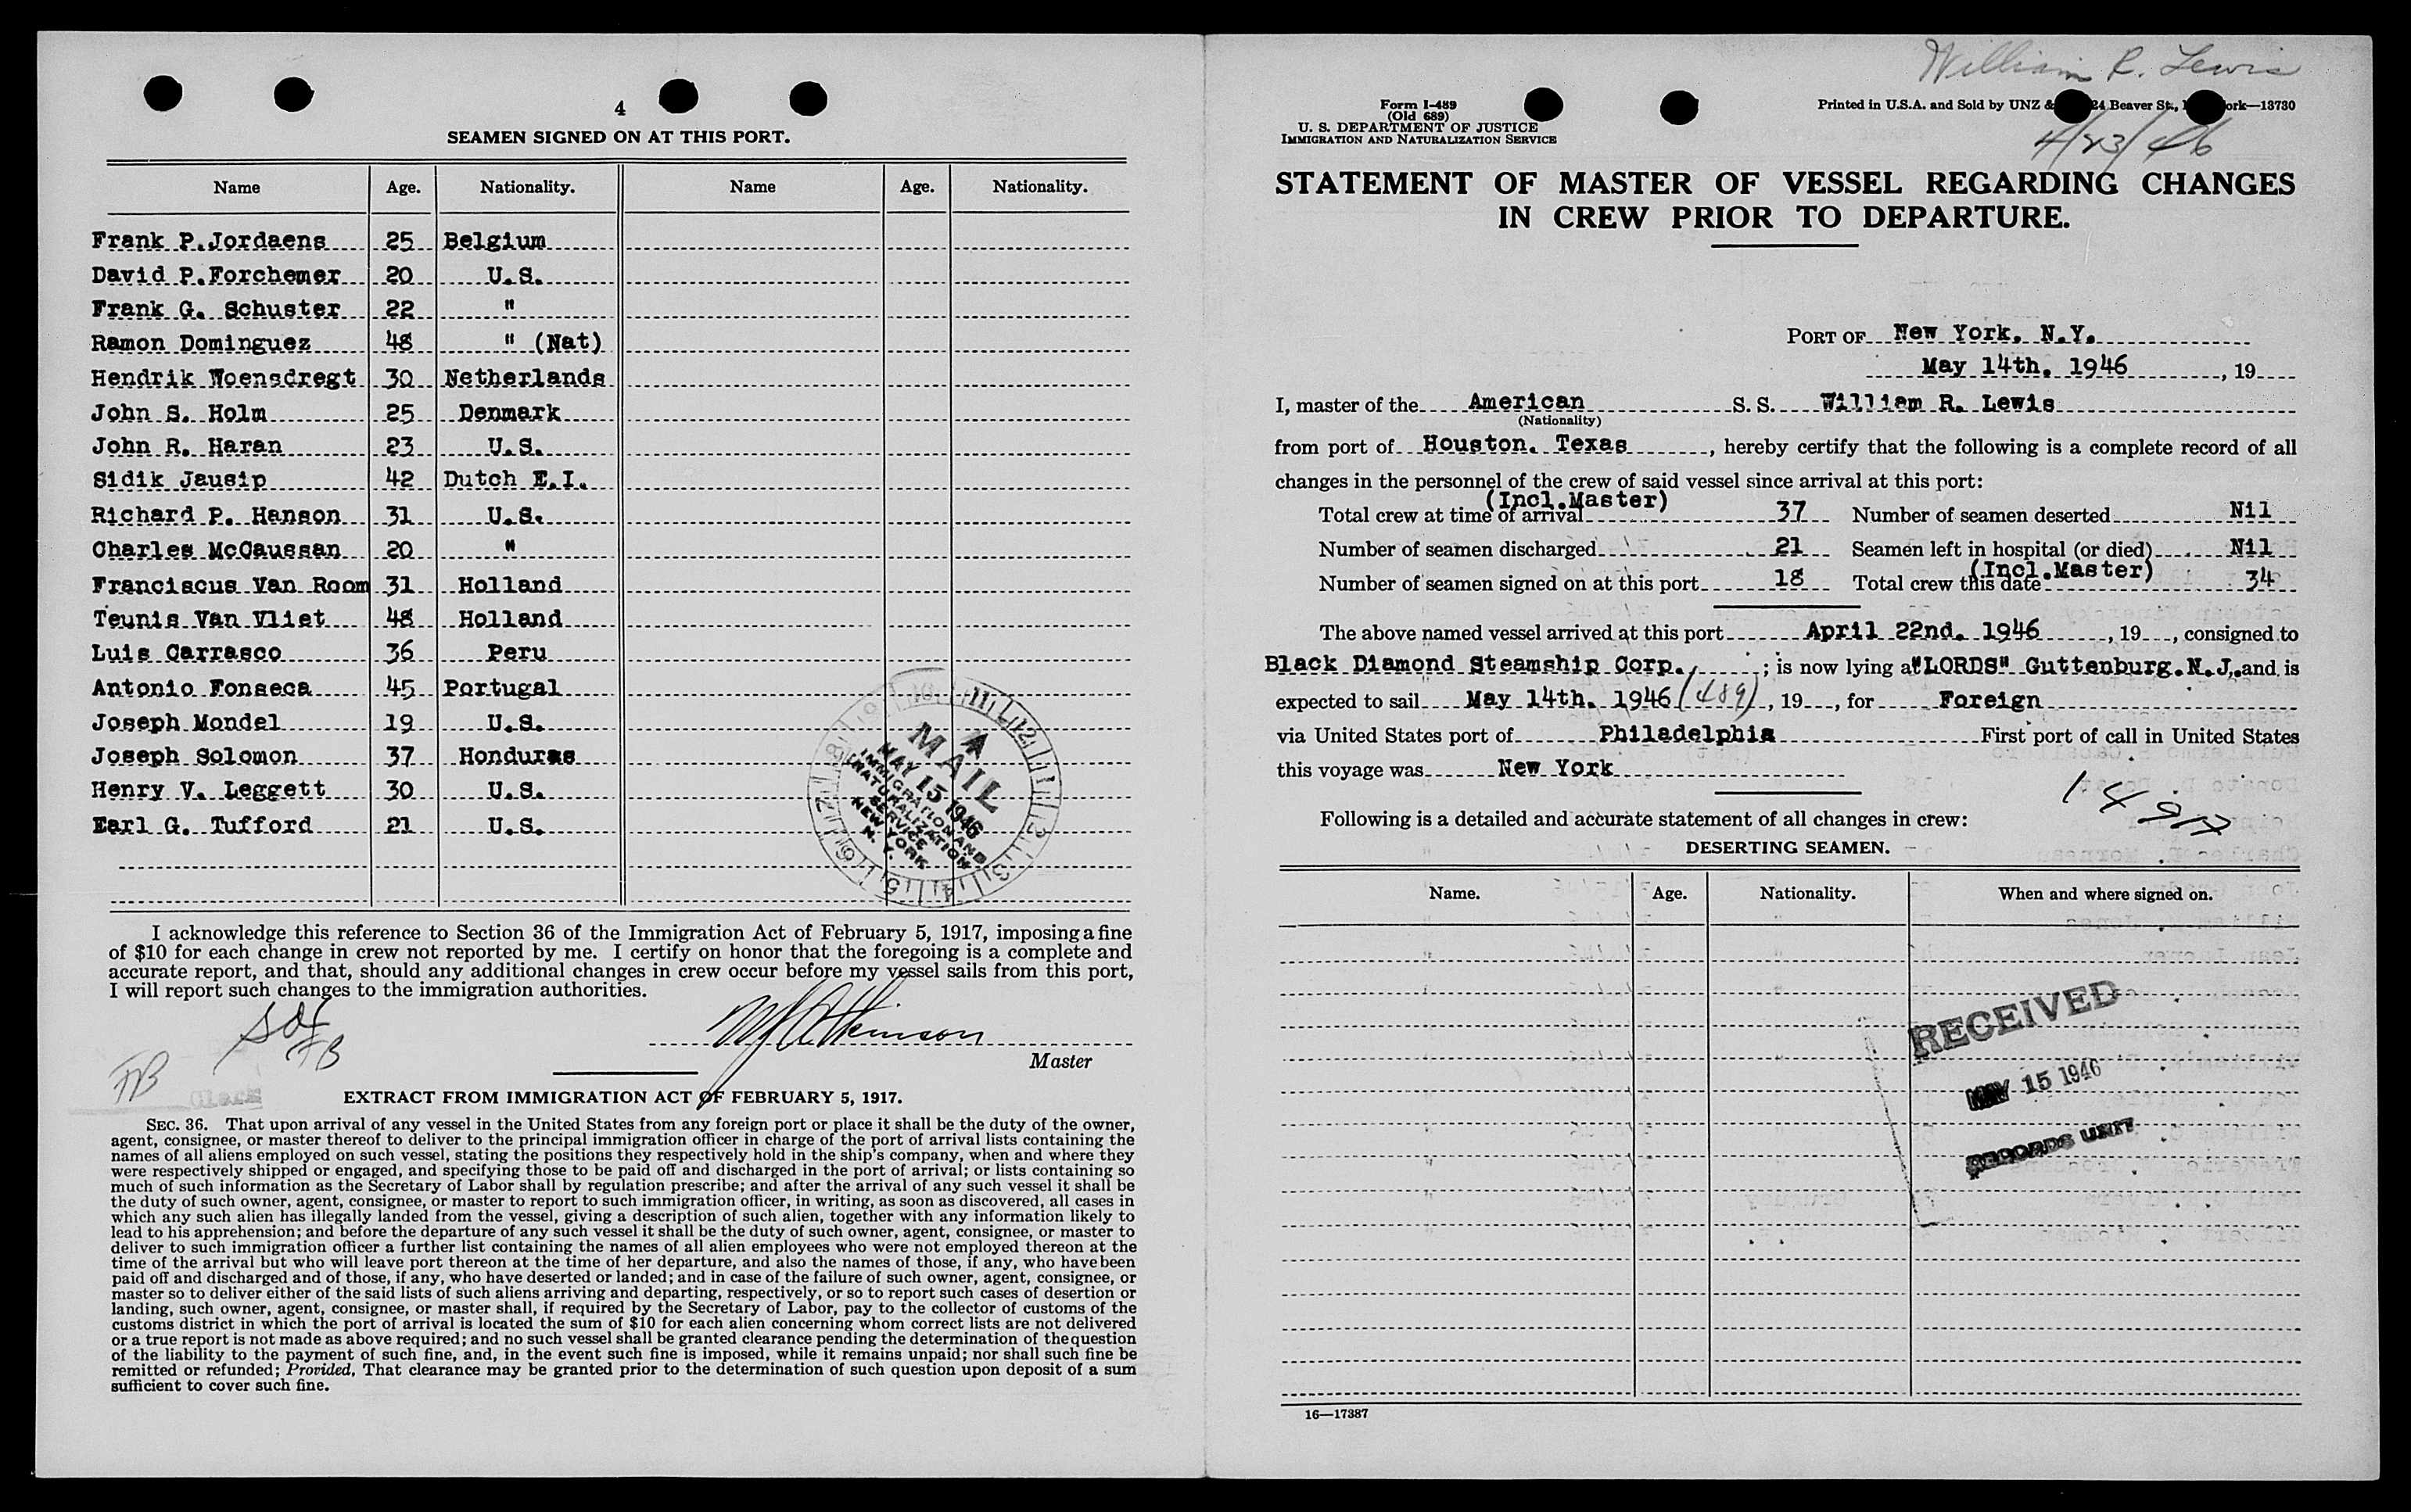 4
SEAMEN SIGNED ON AT THIS PORT.
Name Age. Nationality. Name Age. Nationality.
Frank P.Jordaens 25 Belgium
David P.Forchemer 20 U.S.
Frank G. Schuster 22 "
Ramon Dominguez 48 " (Nat)
Hendrik Woensdregt 30 Netherlands
John S. Holm 25 Denmark
John R. Haran 23 U.S.
Sidik Jausip 42 Dutch E.I.
Richard P. Hanson 31 U.S.
Charles McCaussan 20 "
Franciscus Van Room 31 Holland
Teunis Van Vliet 48 Holland
Luis Carrasco 36 Peru
Antonio Fonseca 45 Portugal
Joseph Mondel 19 U.S.
Joseph Solomon 37 Honduras
Henry V. Leggett 30 U.S.
Earl G. Tufford 21 U.S.
A
MAIL
MAY 15 1946
IMMIGRATION AND
NATURALIZATION
SERVICE
NEW YORK
N. Y.
I acknowledge this reference to Section 36 of the Immigration Act of February 5, 1917, imposing a fine
of $10 for each change in crew not reported by me. I certify on honor that the foregoing is a complete and
accurate report, and that, should any additional changes in crew occur before my vessel sails from this port,
I will report such changes to the immigration authorities.
Master
FB
EXTRACT FROM IMMIGRATION ACT OF FEBRUARY 5, 1917.
SEC. 36. That upon arrival of any vessel in the United States from any foreign port or place it shall be the duty of the owner,
agent, consignee, or master thereof to deliver to the principal immigration officer in charge of the port of arrival lists containing the
names of all aliens employed on such vessel, stating the positions they respectively hold in the ship's company, when and where they
were respectively shipped or engaged, and specifying those to be paid off and discharged in the port of arrival; or lists containing so
much of such information as the Secretary of Labor shall by regulation prescribe; and after the arrival of any such vessel it shall be
the duty of such owner, agent, consignee, or master to report to such immigration officer, in writing, as soon as discovered, all cases in
which any such alien has illegally landed from the vessel, giving a description of such alien, together with any information likely to
lead to his apprehension; and before the departure of any such vessel it shall be the duty of such owner, agent, consignee, or master to
deliver to such immigration officer a further list containing the names of all alien employees who were not employed thereon at the
time of the arrival but who will leave port thereon at the time of her departure, and also the names of those, if any, who have been
paid off and discharged and of those, if any, who have deserted or landed; and in case of the failure of such owner, agent, consignee, or
master so to deliver either of the said lists of such aliens arriving and departing, respectively, or so to report such cases of desertion or
landing, such owner, agent, consignee, or master shall, if required by the Secretary of Labor, pay to the collector of customs of the
customs district in which the port of arrival is located the sum of $10 for each alien concerning whom correct lists are not delivered
or a true report is not made as above required; and no such vessel shall be granted clearance pending the determination of the question
of the liability to the payment of such fine, and, in the event such fine is imposed, while it remains unpaid; nor shall such fine be
remitted or refunded; Provided, That clearance may be granted prior to the determination of such question upon deposit of a sum
sufficient to cover such fine.
William R. Lewis
Form I-489
(Old 689)
U. S. DEPARTMENT OF JUSTICE
IMMIGRATION AND NATURALIZATION SERVICE
Printed in U.S.A. and Sold by UNZ & 24 Beaver St., ork—13730
4/23/46
STATEMENT OF MASTER OF VESSEL REGARDING CHANGES
IN CREW PRIOR TO DEPARTURE.
PORT OF New York, N.Y.
May 14th, 1946, 19
I, master of the American S. S. William R. Lewis
(Nationality)
from port of Houston, Texas, hereby certify that the following is a complete record of all
changes in the personnel of the crew of said vessel since arrival at this port:
(Incl.Master)
Total crew at time of arrival 37 Number of seamen deserted Nil
Number of seamen discharged 21 Seamen left in hospital (or died) Nil
(Incl.Master)
Number of seamen signed on at this port 18 Total crew this date 34
The above named vessel arrived at this port April 22nd, 1946, 19, consigned to
Black Diamond Steamship Corp.; is now lying at "LORDS" Guttenburg.N.J. and is
expected to sail May 14th, 1946 (489), 19, for Foreign
via United States port of Philadelphia First port of call in United States
this voyage was New York
14917
Following is a detailed and accurate statement of all changes in crew:
DESERTING SEAMEN.
Name. Age. Nationality. When and where signed on.
RECEIVED
MAY 15 1946
RECORDS UNIT
16—17387